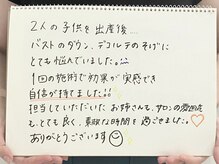 2人の子供を出産後....
バストのダウン、デコルテのそげに
とても悩んでいました。
1回の施術で効果が実感でき
自信が持てました!!
担当していただいた お姉さんも、サロンの雰囲気
も、とても良く、素敵な時間を過ごせました。
ありがとうございます